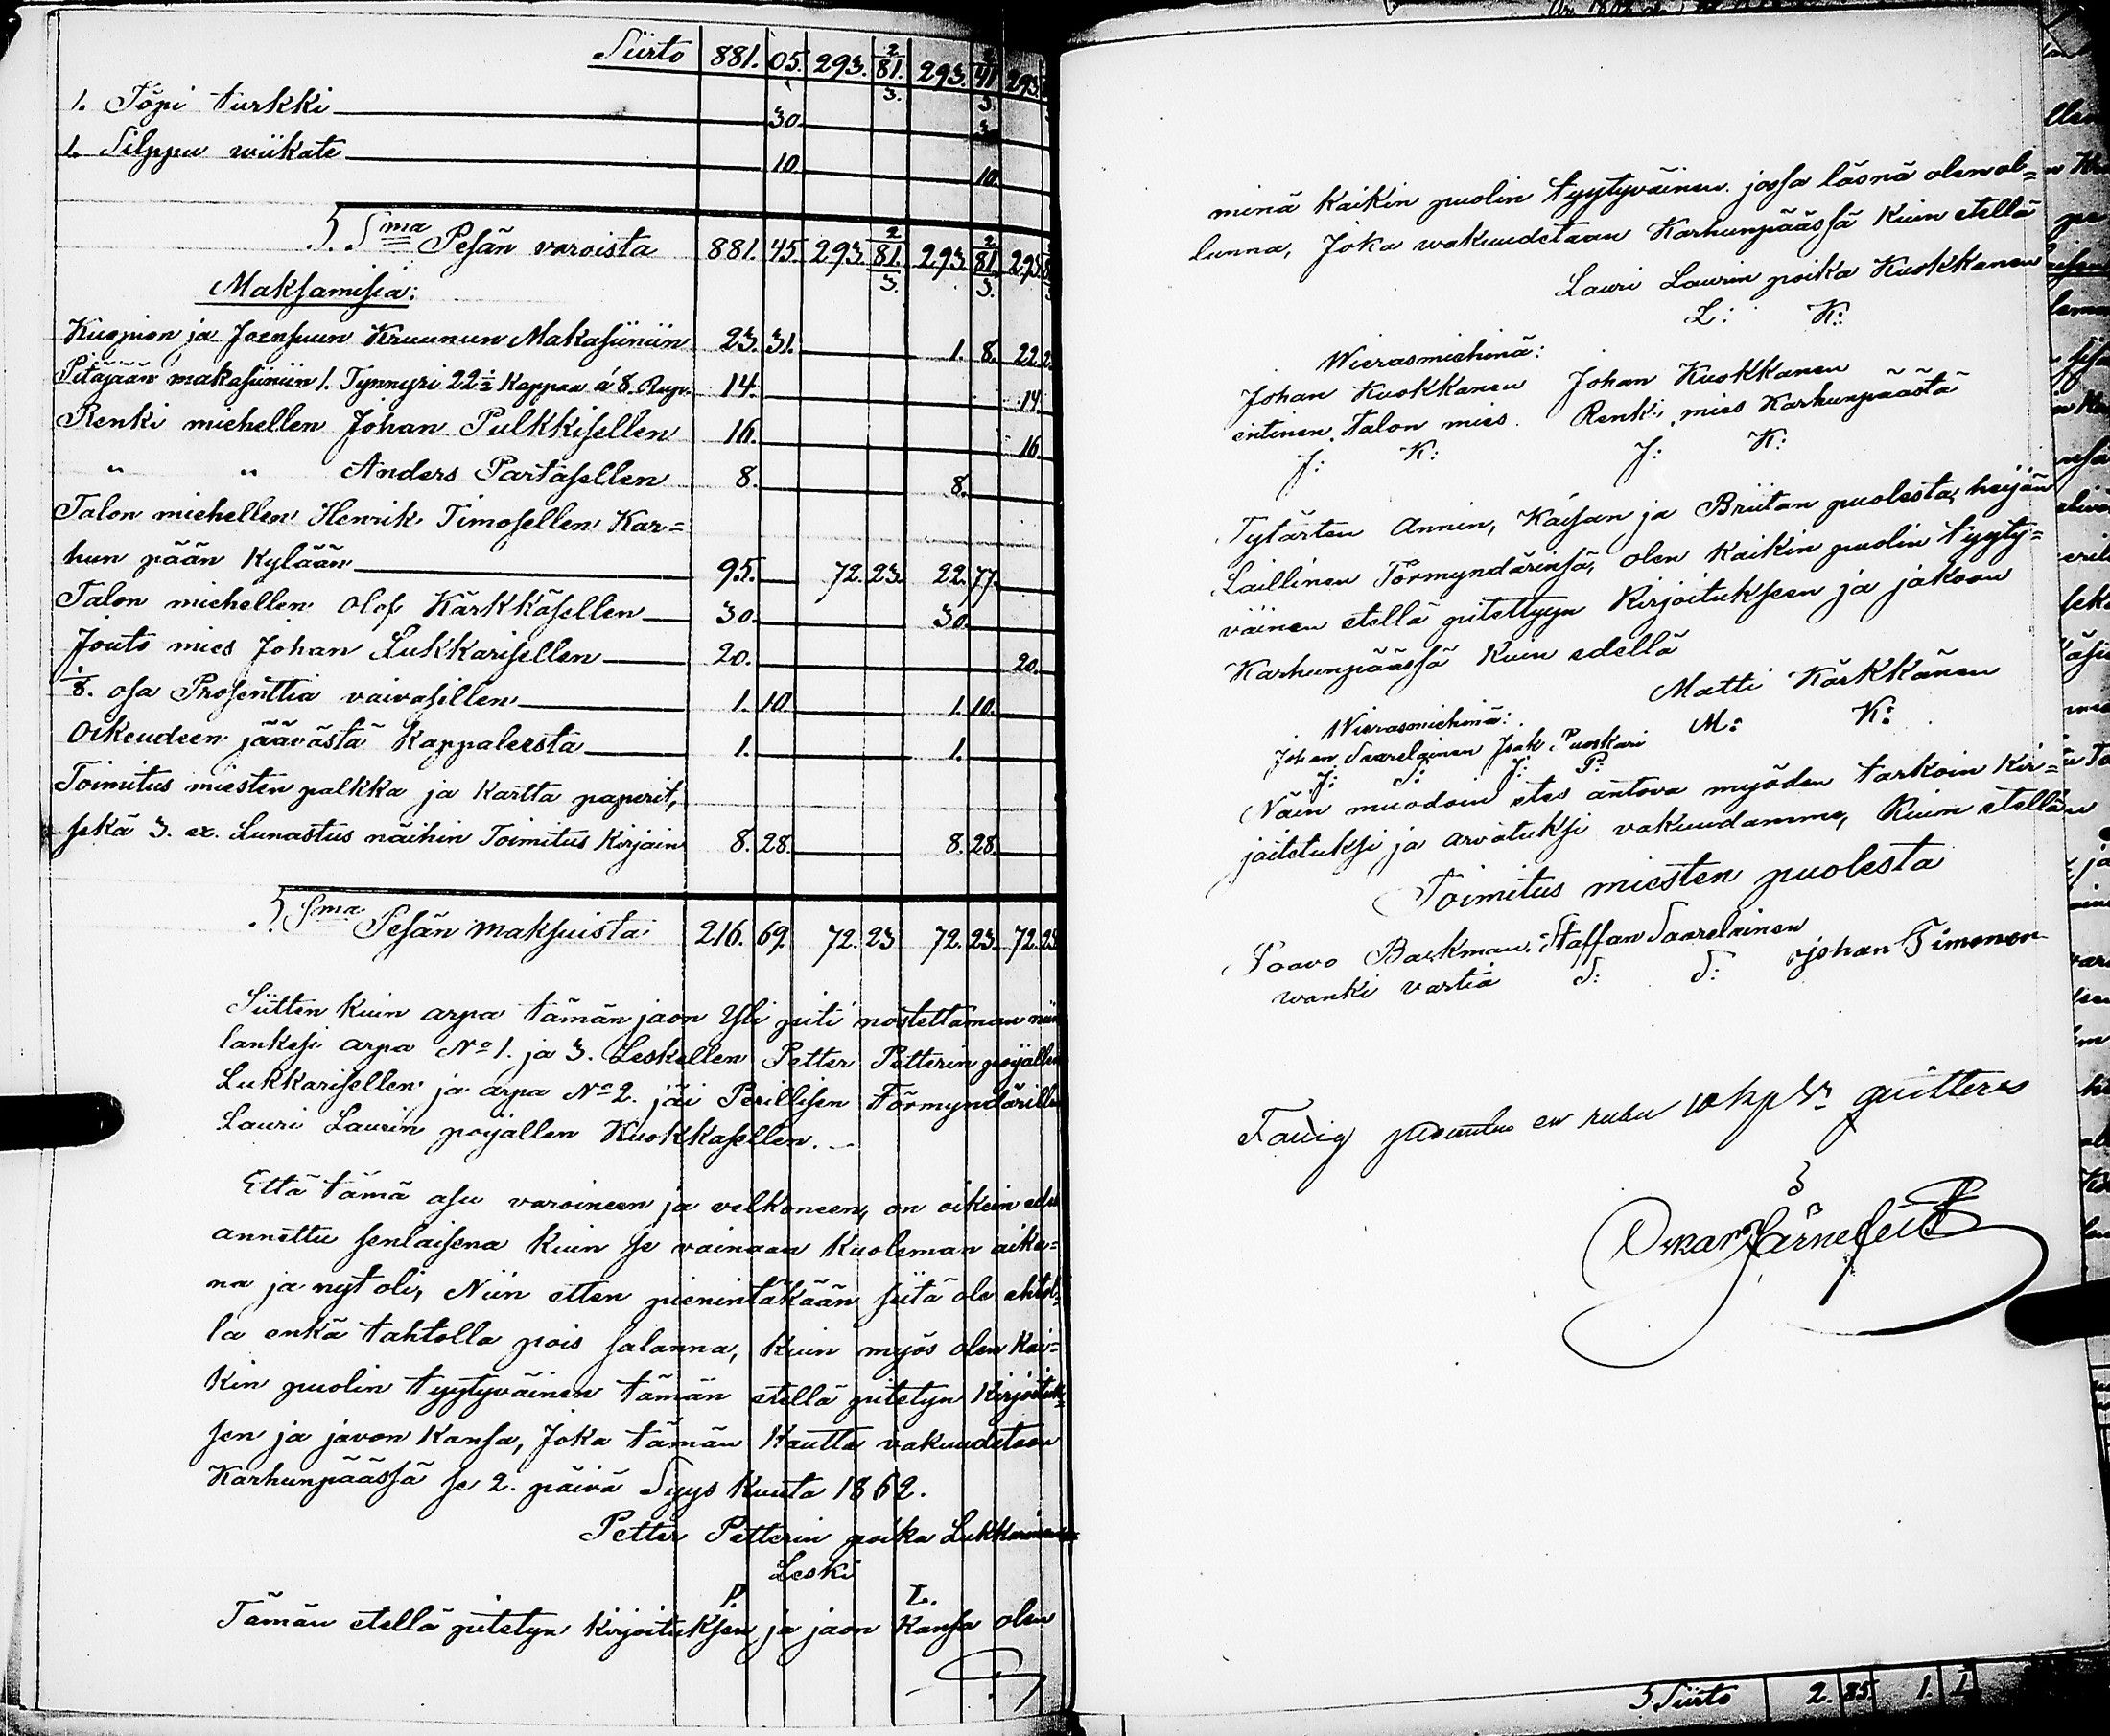 Siirto 881. 05. 293. 81. 2/3. 293. 41 2/3. 293.
1. Töpi turkki 30. 30
1. Silppu wiikate 10. 10.
S. Sma Pesän varoista 881. 45. 293. 81. 2/3. 293. 81 2/3. 293.
Maksamisia:
Kuopion ja Joensuun Kruunun Makasiiniin 23. 31. 1. 8. 22.
Pitäjään makasiiniin 1. Tynnyri 22 1/2 Kappaa á 8. Rup. 14. 14.
Renki miehellen Johan Pulkkisellen 16. 16.
" " Anders Partasellen 8. 8.
Talon miehellen Henrik Timosellen Kar=
hun pään Kylään 95. 72. 23. 22. 77.
Talon miehellen Olof Kärkkäsellen 30. 30.
Jouto mies Johan Lukkarisellen 20. 20.
1/8. osa Prosenttia vaivasillen 1. 10. 1. 10.
Oikeudeen jäävästä Kappaleesta 1. 1.
Toimitus miesten palkka ja Kartta paperit,
sekä 3. ex. Lunastus näihin Toimitus Kirjain 8. 28. 8. 28.
S. Sma Pesän maksuista 216. 69. 72. 23 72. 23. 72. 23
Siitten Kuin arpa tämän jaon Yli piti nostettaman niin
lankesi arpa No 1. ja 3. Leskellen Petter Petterin pojallen
Lukkarisellen ja arpa No 2. jäi Perillisen Förmyndärillen
Lauri Laurin pojallen Kuokkasellen. –
Että tämä asu varoineen ja velkoneen, on oikein edes
annettu senlaisena Kuin se vainaan Kuoleman aika=
na ja nyt oli, Niin etten pienintäkään siitä ole ehtol=
la enkä tahtolla pois salanna, Kuin myös olen Kai=
kin puolin tyytyväinen tämän etellä pitetyn Kirjoituk=
sen ja javon Kansa, Joka tämän Kautta vakuudetaan
Karhunpäässä se 2. päivä Syys Kuuta 1862.
Petter Petterin poika Lukkarinen
Leski
P. L.
Tämän etellä pitetyn Kirjoituksen ja jaon Kansa olen
minä Kaikin puolin tyytyväinen jossa läsnä olen ol=
lunna, Joka wakuudetaan Karhunpäässä Kuin etellä
Lauri Laurin poika Kuokkanen
L: K:
Wierasmiehinä:
Johan Kuokkanen Johan Kuokkanen
entinen Talon mies. Renki mies Karhunpäästä
J: K: J: K:
Tytärten Annin, Kaisan ja Briitan puolesta, heijän
Laillinen Förmyndärinsä, olen Kaikin puolin tyyty=
väinen etellä pitettyyn Kirjoitukseen ja jakoon
Karhunpäässä Kuin edellä
Matti Kärkkänen
M: K:
Wierasmiehinä:
Johan Saarelainen Isak Puoskari
J: S: J: P:
Näin muodoin etes antova myöden tarkoin Kir=
joitetuksi ja arvatuksi vakuudamme, Kuin etellän
Toimitus miesten puolesta
Paavo Backman. Staffan Saarelainen Johan Timonen
wanki vartia S: S:
Fattig prosenten en rubel 10 kop Sr qvitteras
Oskar Järnefelt
S. Siirto 2. 85. 1. 1